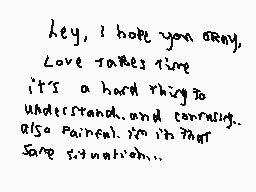 hey, i hope you okay,
Love takes time
it's a hard thing to
understand.. and confusing..
also painful. i'm in that
same situation...